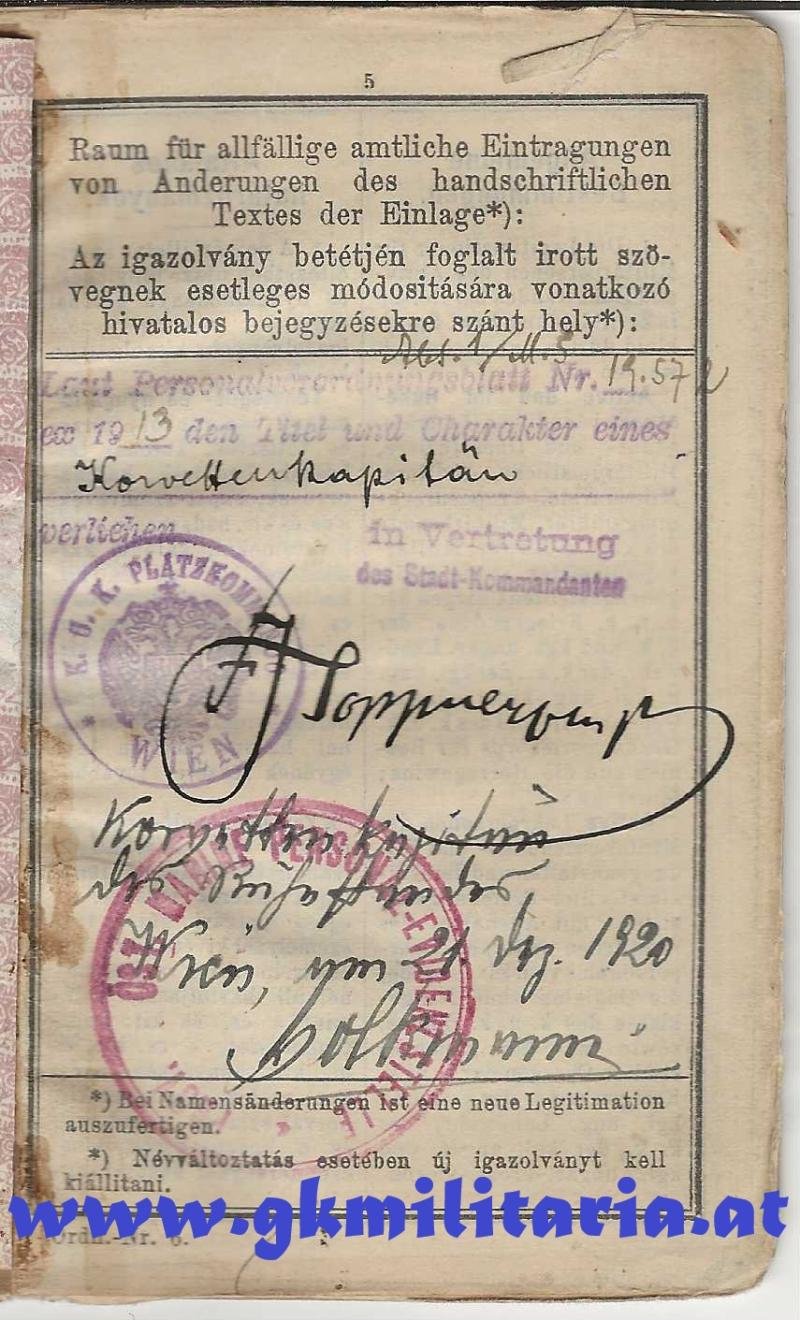 5
Raum für allfällige amtliche Eintragungen
von Änderungen des handschriftlichen
Textes der Einlage*):
Az igazolvány betétjén foglalt irott szö-
vegnek esetleges módositására vonatkozó
hivatalos bejegyzésekre szánt hely*):
Abt. 1/M.S.
Laut Personalverordnungsblatt Nr. 19.572
ex 1913 den Titel und Charakter eines
Korvettenkapitän
verliehen
in Vertretung
des Stadt-Kommandanten
* K. U. K. PLATZKOMM
WIEN
Korvettenkapitän
des Ruhestandes,
Wien, am 21. Dez. 1920
MARINE-PERSONAL-EVIDENZSTELLE
*) Bei Namensänderungen ist eine neue Legitimation
auszufertigen.
*) Névváltoztatás esetében új igazolványt kell
kiállitani.
www.gkmilitaria.at
Ordn.-Nr. 6.